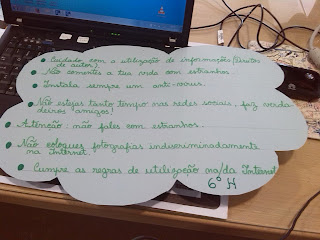 • Cuidado com a utilização de informações (Direitos de autor).
• Não comentes a tua vida com estranhos.
• Instala sempre um anti-vírus.
• Não estejas tanto tempo nas redes sociais, faz verda-
deiros amigos!
• Atenção: não fales com estranhos.
• Não coloques fotografias indiscriminadamente
na Internet.
• Cumpre as regras de utilização na/da Internet
6º H